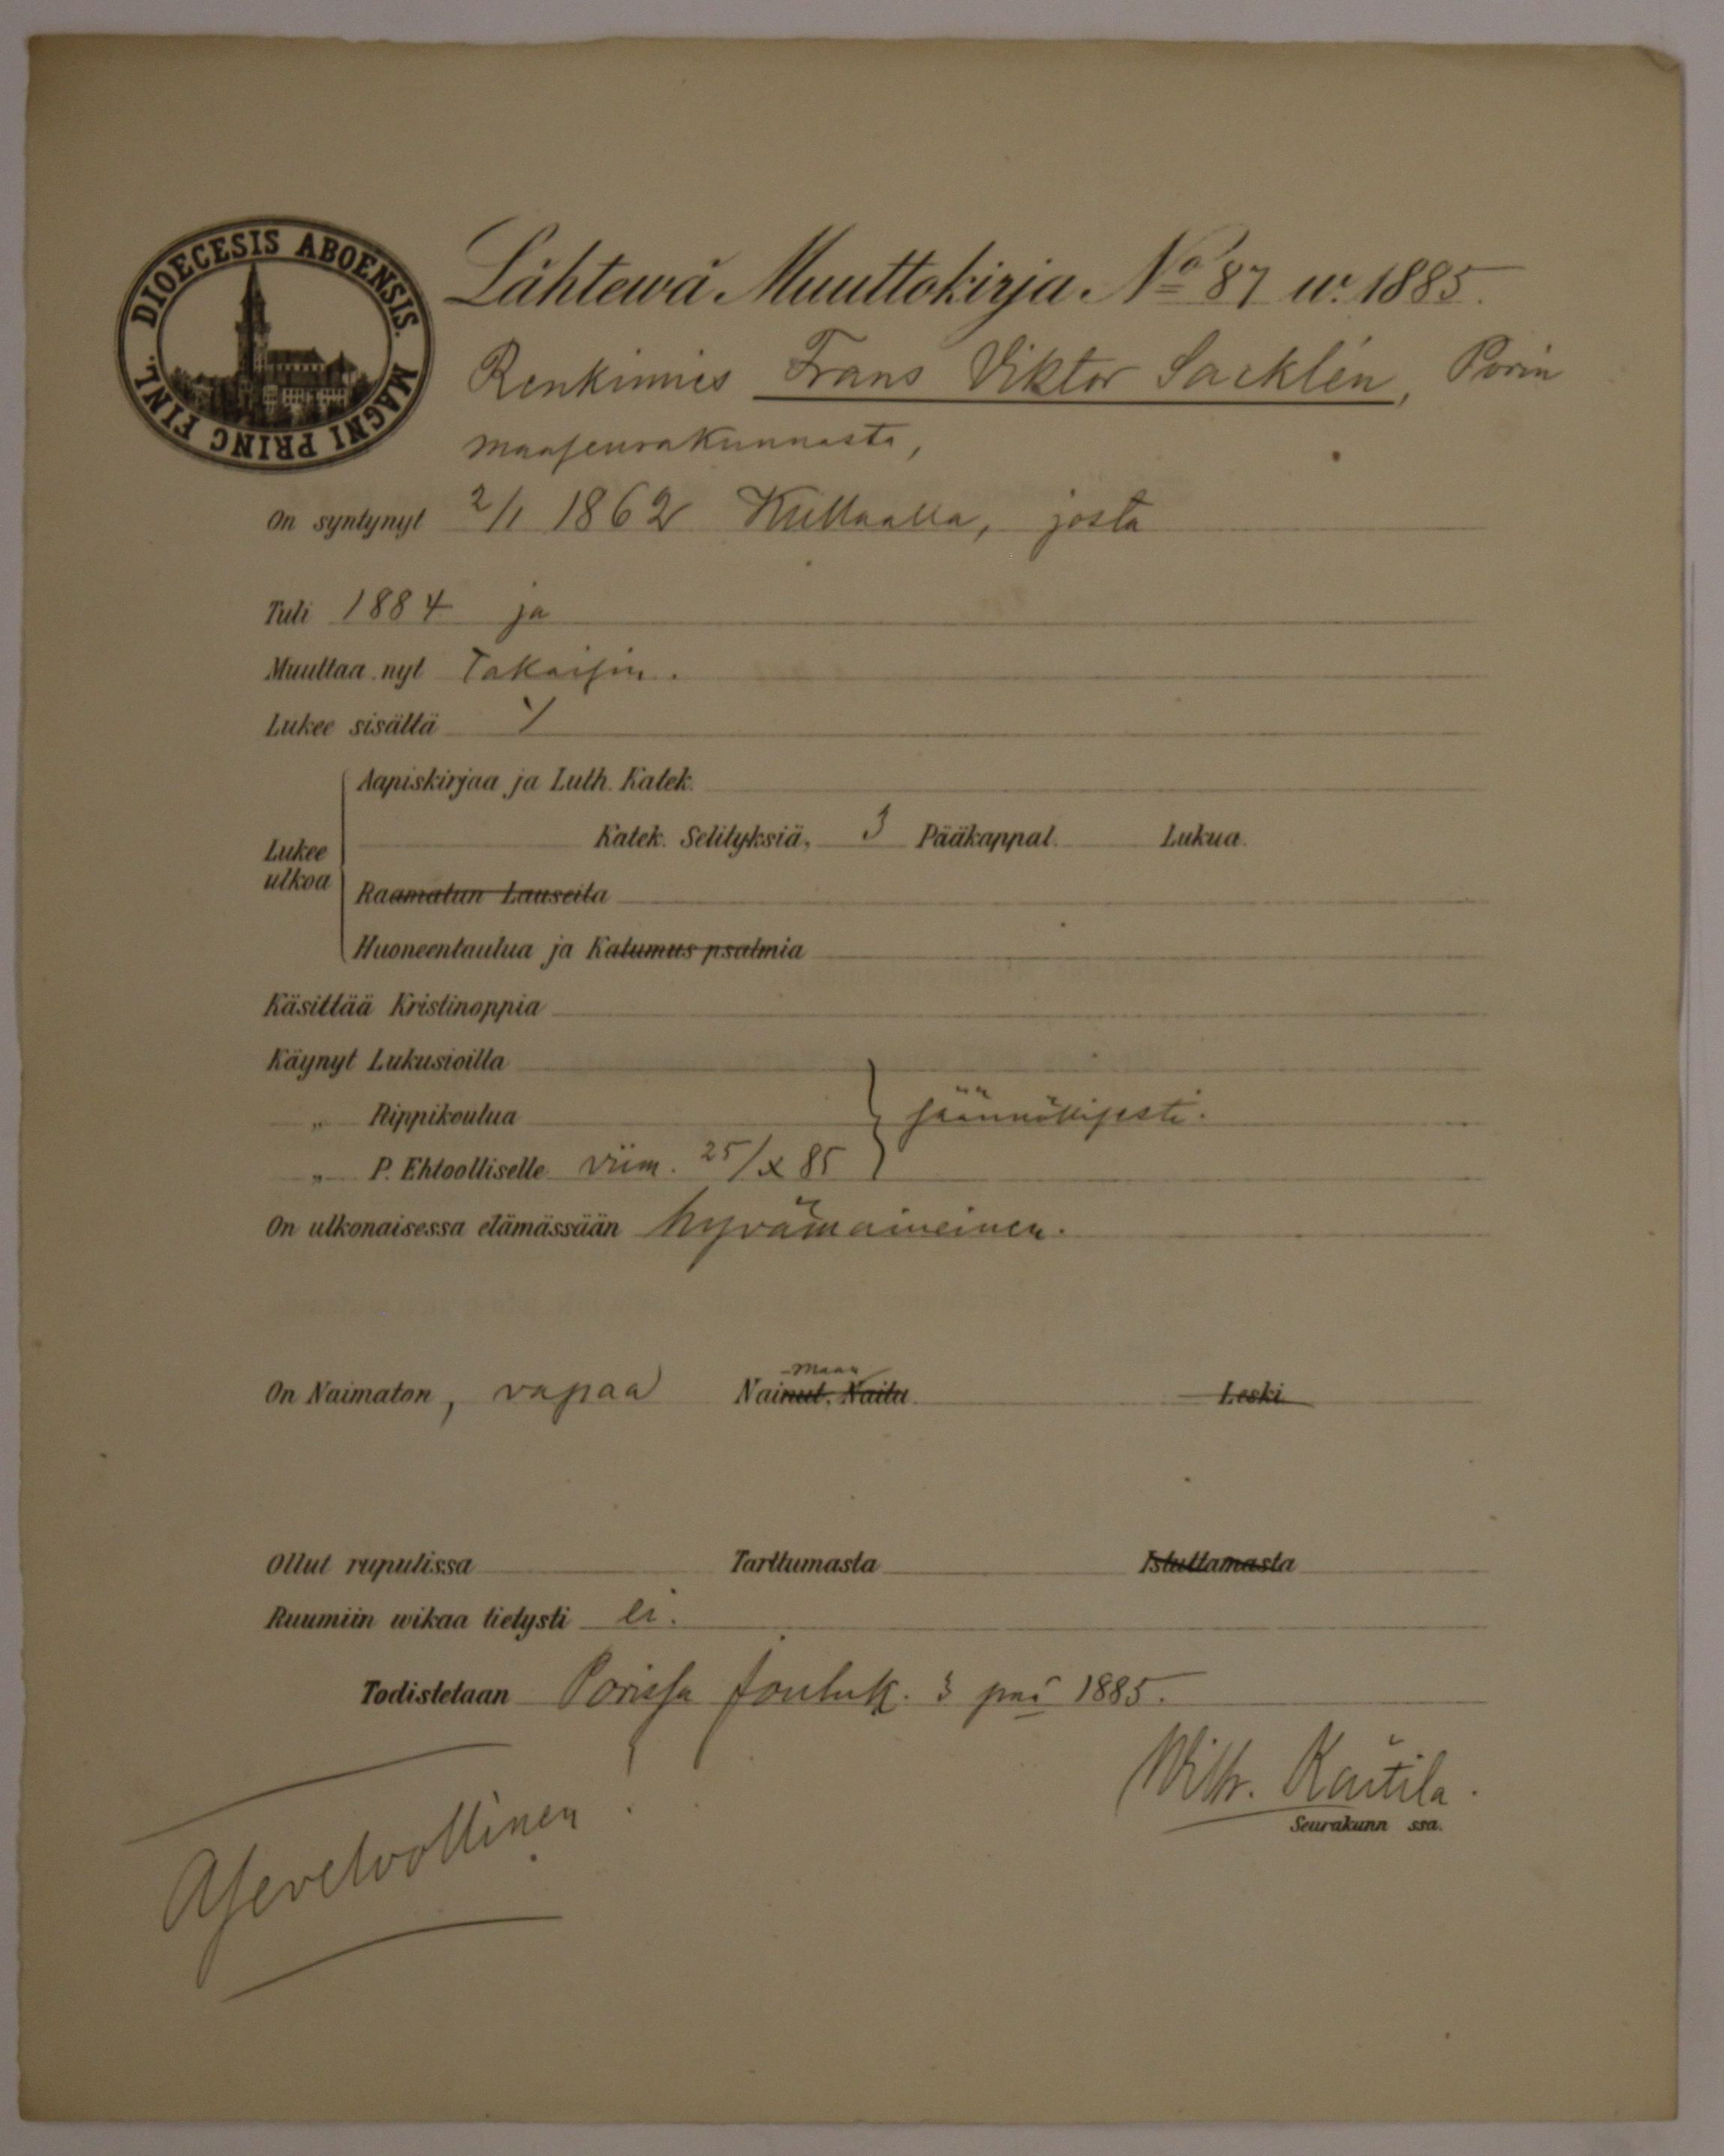 DIOECESIS ABOENSIS. MAGNI PRINC FINL.
Lähtewä Muuttokirja No 87 w. 1885.
Renkimies Frans Viktor Sacklén, Porin
maaseurakunnasta,
On syntynyt 2/1 1862 Kullaalla, josta
Tuli 1884 ja
Muuttaa nyt Takaisin.
Lukee sisältä
Aapiskirjaa ja Luth. Katek.
Katek. Selityksiä, 3 Pääkappal. Lukua.
Lukee
ulkoa
Raamatun Lauseita
Huoneentaulua ja Katumus psalmia
Käsittää Kristinoppia
Käynyt Lukusioilla
„ Rippikoulua säännöllisesti.
„ P. Ehtoolliselle viim. 25/X 85
On ulkonaisessa elämässään hyvämaineinen.
On Naimaton, vapaa Nainut, Naitu Leski
Ollut rupulissa Tarttumasta Istuttamasta
Ruumiin wikaa tietysti ei.
Todistetaan Porissa Jouluk. 3 pnä 1885.
Wilh. Kärtilä.
Seurakunn ssa.
Asevelvollinen!